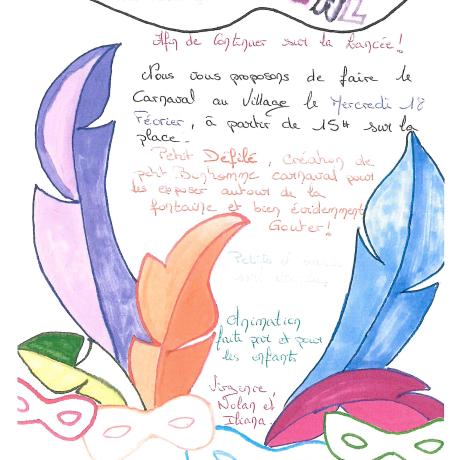 Afin de Continuer sur la Lancée!
Nous vous proposons de faire le
Carnaval au Village le Mercredi 18
Février, à partir de 15H sur la
place.
Petit Défilé, Création de
petit Bonhomme carnaval pour
les exposer autour de la
fontaine et bien évidemment
Gouter!
Petits
Animation
faite par et pour
les enfants
Nolan et
Iliana.